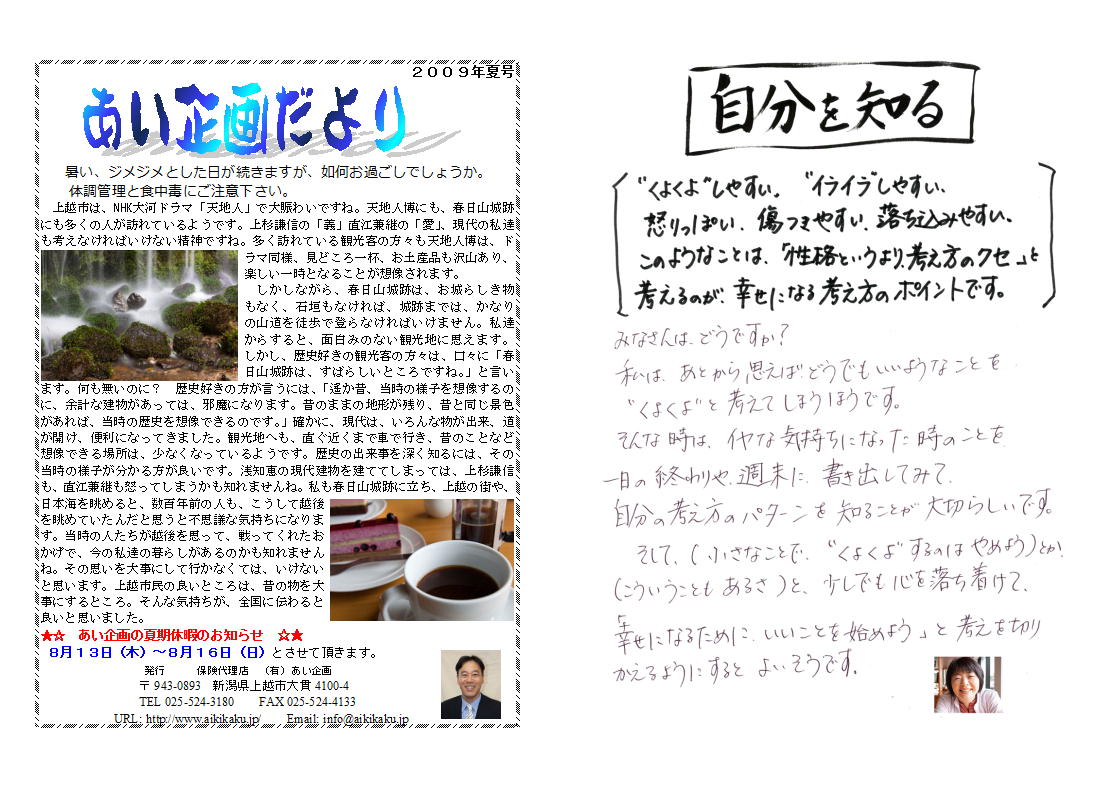 ２００９年夏号
あい企画だより
暑い、ジメジメとした日が続きますが、如何お過ごしでしょうか。
体調管理と食中毒にご注意下さい。
上越市は、NHK大河ドラマ「天地人」で大賑わいですね。天地人博にも、春日山城跡
にも多くの人が訪れているようです。上杉謙信の「義」直江兼継の「愛」、現代の私達
も考えなければいけない精神ですね。多く訪れている観光客の方々も天地人博は、ド
ラマ同様、見どころ一杯、お土産品も沢山あり、
楽しい一時となることが想像されます。
しかしながら、春日山城跡は、お城らしき物
もなく、石垣もなければ、城跡までは、かなり
の山道を徒歩で登らなければいけません。私達
からすると、面白みのない観光地に思えます。
しかし、歴史好きの観光客の方々は、口々に「春
日山城跡は、すばらしいところですね。」と言い
ます。何も無いのに？　歴史好きの方が言うには、「遥か昔、当時の様子を想像するの
に、余計な建物があっては、邪魔になります。昔のままの地形が残り、昔と同じ景色
があれば、当時の歴史を想像できるのです。」確かに、現代は、いろんな物が出来、道
が開け、便利になってきました。観光地へも、直ぐ近くまで車で行き、昔のことなど
想像できる場所は、少なくなっているようです。歴史の出来事を深く知るには、その
当時の様子が分かる方が良いです。浅知恵の現代建物を建ててしまっては、上杉謙信
も、直江兼継も怒ってしまうかも知れませんね。私も春日山城跡に立ち、上越の街や、
日本海を眺めると、数百年前の人も、こうして越後
を眺めていたんだと思うと不思議な気持ちになりま
す。当時の人たちが越後を思って、戦ってくれたお
かげで、今の私達の暮らしがあるのかも知れません
ね。その思いを大事にして行かなくては、いけない
と思います。上越市民の良いところは、昔の物を大
事にするところ。そんな気持ちが、全国に伝わると
良いと思いました。
★☆　あい企画の夏期休暇のお知らせ　☆★
８月１３日（木）～８月１６日（日）とさせて頂きます。
発行　保険代理店　（有）あい企画
〒943-0893　新潟県上越市大貫 4100-4
TEL 025-524-3180　FAX 025-524-4133
URL: http://www.aikikaku.jp/　Email: info@aikikaku.jp
自分を知る
“くよくよ”しやすい、“イライラ”しやすい、
怒りっぽい、傷つきやすい、落ち込みやすい、
このようなことは、「性格というより、考え方のクセ」と
考えるのが、幸せになる考え方のポイントです。
みなさんは、どうですか？
私は、あとから思えばどうでもいいようなことを
“くよくよ”と考えてしまうほうです。
そんな時は、イヤな気持ちになった時のことを
一日の終わりや、週末に、書き出してみて、
自分の考え方のパターンを知ることが大切らしいです。
そして、（小さなことで、“くよくよ”するのはやめよう）とか
（こういうこともあるさ）と、少しでも心を落ち着けて、
「幸せになるために、いいことを始めよう」と考えを切り
かえるようにするとよいそうです。